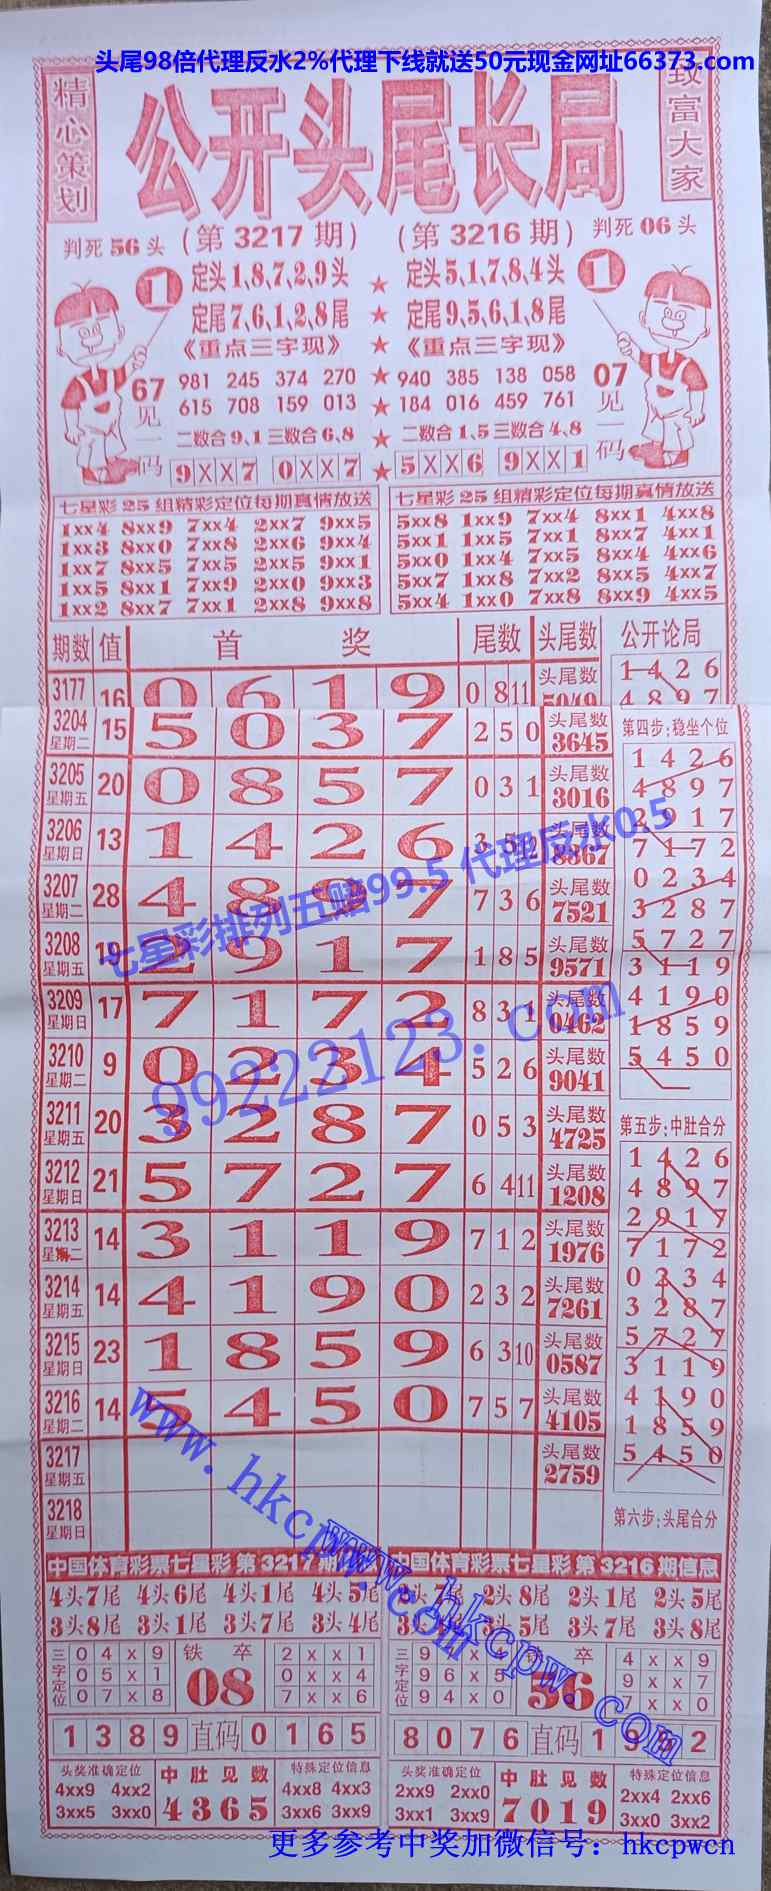 头尾98倍代理反水2%代理下线就送50元现金网址66373.com
精心策划
公开头尾长局
致富大家
判死 56 头 (第 3217 期) (第 3216 期) 判死 06 头
1 定头1,8,7,2,9头 ★ 定头5,1,7,8,4头 1
定尾7,6,1,2,8尾 ★ 定尾9,5,6,1,8尾
《重点三字现》 ★ 《重点三字现》
67见一码 981 245 374 270 ★ 940 385 138 058 07见一码
615 708 159 013 184 016 459 761
二数合9,1三数合6,8 ★ 二数合1,5三数合4,8
9XX7 0XX7 ★ 5XX6 9XX1
七星彩25组精彩定位每期真情放送 七星彩25组精彩定位每期真情放送
1xx4 8xx9 7xx4 2xx7 9xx5 5xx8 1xx9 7xx4 8xx1 4xx8
1xx3 8xx0 7xx8 2xx6 9xx4 5xx1 1xx5 7xx1 8xx7 4xx1
1xx7 8xx5 7xx5 2xx5 9xx1 5xx0 1xx4 7xx5 8xx4 4xx6
1xx5 8xx1 7xx9 0xx0 9xx3 5xx7 1xx8 7xx2 8xx5 4xx7
1xx2 8xx7 7xx1 2xx8 9xx8 5xx4 1xx0 7xx8 8xx9 4xx5
期数 值 首奖 尾数 头尾数 公开论局
3177 16 0 6 1 9 0 8 11 头尾数 5049
1 4 2 6
4 8 9 7
3204 星期二 15 5 0 3 7 2 5 0 头尾数 3645
3205 星期五 20 0 8 5 7 0 3 1 头尾数 3016
3206 星期日 13 1 4 2 6 3 头尾数 8367
3207 星期二 28 4 8 9 7 7 3 6 头尾数 7521
3208 星期五 19 2 9 1 7 1 8 5 头尾数 9571
3209 星期日 17 7 1 7 2 8 3 1 头尾数 0462
3210 星期二 9 0 2 3 4 5 2 6 头尾数 9041
3211 星期五 20 3 2 8 7 0 5 3 头尾数 4725
3212 星期日 21 5 7 2 7 6 4 11 头尾数 1208
3213 星期二 14 3 1 1 9 7 1 2 头尾数 1976
3214 星期五 14 4 1 9 0 2 3 2 头尾数 7261
3215 星期日 23 1 8 5 9 6 3 10 头尾数 0587
3216 星期二 14 5 4 5 0 7 5 7 头尾数 4105
3217 星期五 头尾数 2759
3218 星期日
第四步:稳坐个位
1 4 2 6
4 8 9 7
2 9 1 7
7 1 7 2
0 2 3 4
3 2 8 7
5 7 2 7
3 1 1 9
4 1 9 0
1 8 5 9
5 4 5 0
第五步:中肚合分
1 4 2 6
4 8 9 7
2 9 1 7
7 1 7 2
0 2 3 4
3 2 8 7
5 7 2 7
3 1 1 9
4 1 9 0
1 8 5 9
5 4 5 0
第六步:头尾合分
七星彩排列五赔99.5 代理反水0.5
99222123.com
www.hkcpw.com
www.hkcpw.com
中国体育彩票七星彩 第3217期 中国体育彩票七星彩 第3216期信息
4头7尾 4头6尾 4头1尾 4头5尾 2头8尾 2头1尾 2头5尾
3头8尾 3头1尾 3头7尾 3头4尾 3头5尾 3头7尾 3头8尾
三字定位
0 4 x 9
0 5 x 1
0 7 x 8
铁卒
08
2 x x 1
0 x x 4
7 x x 6
三字定位
9 6 x 5
9 4 x 0
铁卒
56
4 x x 9
9 x x 7
7 x x 0
1 3 8 9 直码 0 1 6 5 8 0 7 6 直码
头奖准确定位
4xx9 4xx2
3xx5 3xx0
中肚见数
4365
特殊定位信息
4xx8 4xx3
3xx6 3xx9
头奖准确定位
2xx9 2xx0
3xx1 3xx9
中肚见数
7019
特殊定位信息
2xx4 2xx6
3xx0 3xx2
更多参考中奖加微信号：hkcpwcn